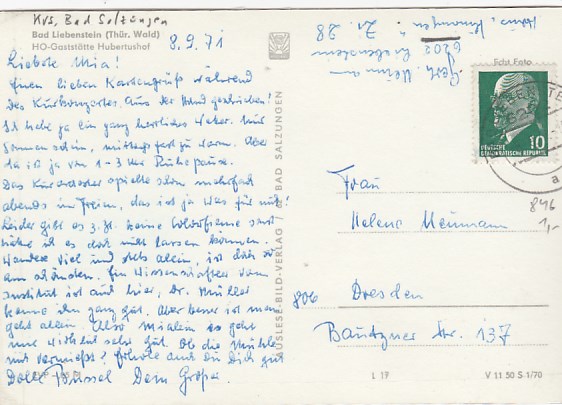 Krs. Bad Salzungen
Bad Liebenstein (Thür. Wald)
HO-Gaststätte Hubertushof
8.9.71
Liebste Mia!
Einen lieben Kartengruß während
des Kurkonzertes. Aus der Hand geschrieben!
Ich habe ja ein ganz herrliches Wetter. Nur
Sonnenschein, mittags fast zu warm. Aber
da ist ja von 1-3 Uhr Ruhepause.
Das Kurorchester spielte schon mehrfach
abends im Freien, das ist ja was für mich!
Leider gibt es z. Zt. keine Colorfilme sonst
hätte ich es dort nicht lassen können.
Wandere viel und stets allein, ist doch so
am schönsten. Ein Wissenschaftler vom
Institut ist auch hier, Dr. Müller
kenne ihn ganz gut. Aber besser ist man
geht allein. Also Mialein es geht
mir wirklich sehr gut. Ob die
mich vermißt? Erhole auch Du Dich gut
Dein
VEB BAD SALZUNGEN
AUSLESE-BILD-VERLAG
Gerh. Neumann
6202 Liebenstein
Zi. 28
Echt Foto
10
DEUTSCHE
DEMOKRATISCHE REPUBLIK
a
846
1,-
Frau
Helene Neumann
806 Dresden
Bautzner Str. 137
L 19
V 11 50 S-1/70